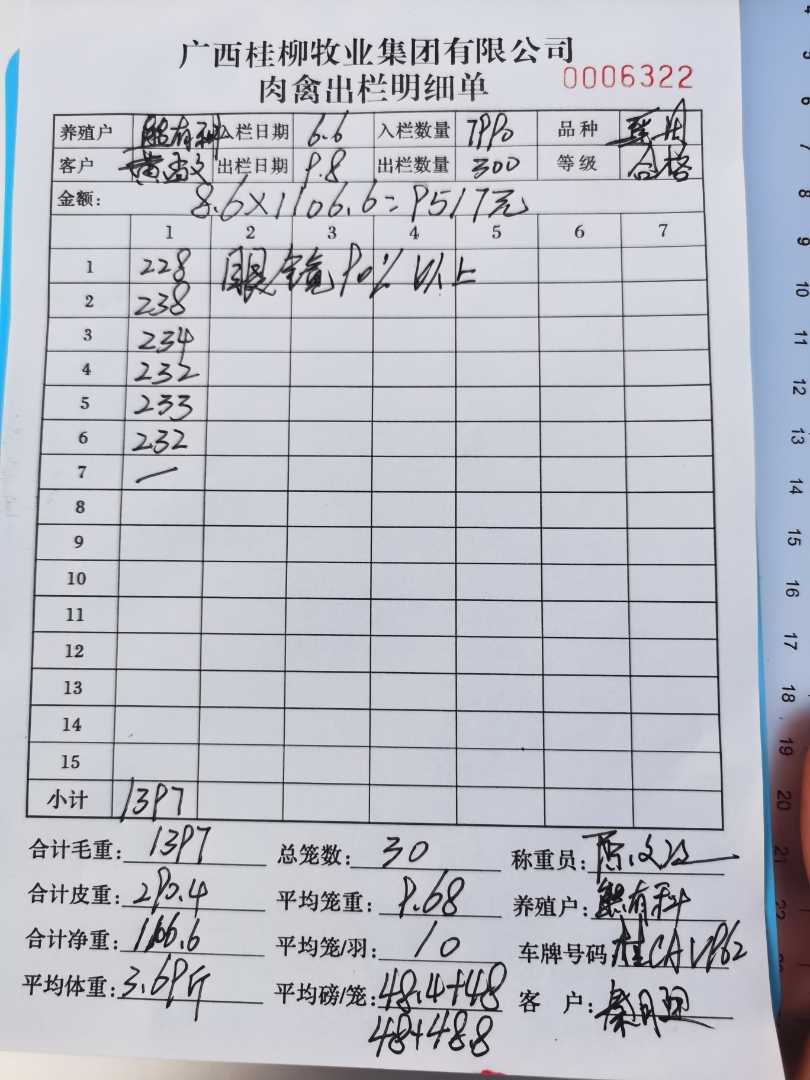 广西桂柳牧业集团有限公司
肉禽出栏明细单 0006322
养殖户 熊有科 入栏日期 6.6 入栏数量 7990 品种
客户 出栏日期 9.8 出栏数量 300 等级 合格
金额: 8.6×1106.6=9517元
1 2 3 4 5 6 7
1 228 眼镜90%以上
2 238
3 234
4 232
5 233
6 232
7 一
8
9
10
11
12
13
14
15
小计 1397
合计毛重: 1397 总笼数: 30 称重员:
合计皮重: 290.4 平均笼重: 9.68 养殖户: 熊有科
合计净重: 1106.6 平均笼/羽: 10 车牌号码 桂CAV962
平均体重: 3.69斤 平均磅/笼: 48.4+48 客 户:
48+48.8
4
5
6
7
8
9
10
11
12
13
14
15
16
17
18
19
20
21
22